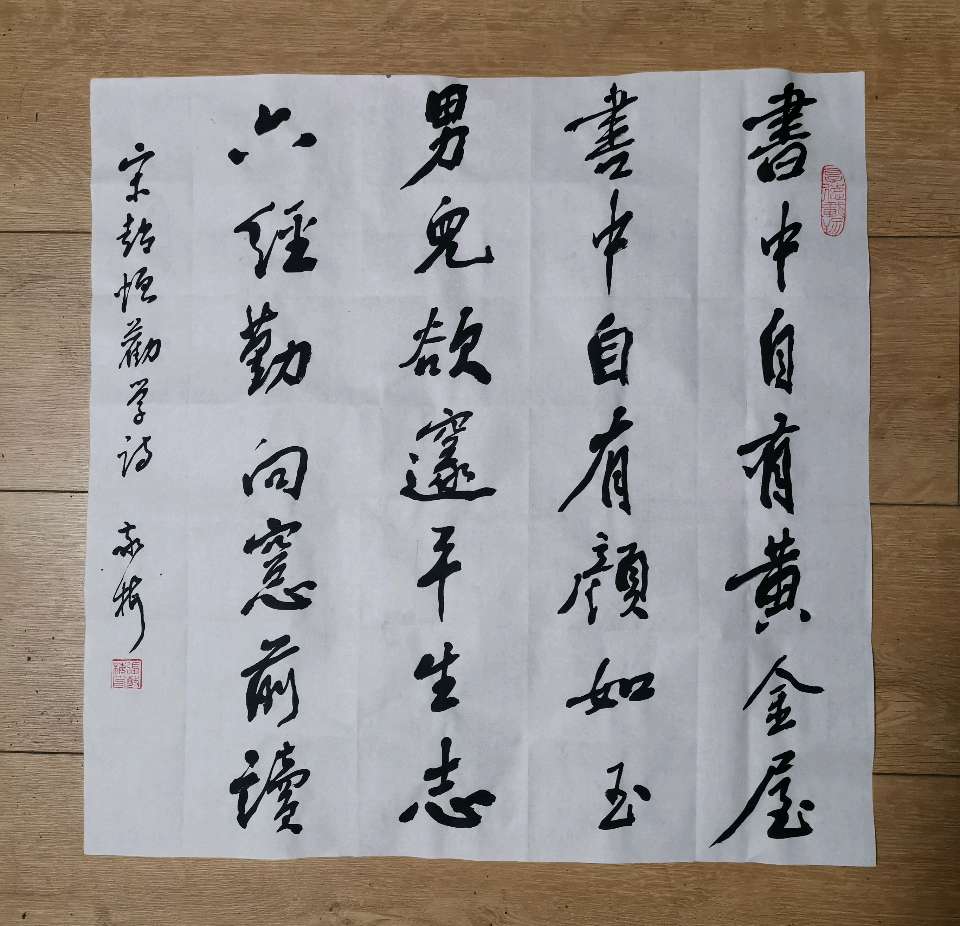 書中自有黄金屋
書中自有顔如玉
男兒欲遂平生志
六經勤向窓前讀
宋趙恒勸学詩